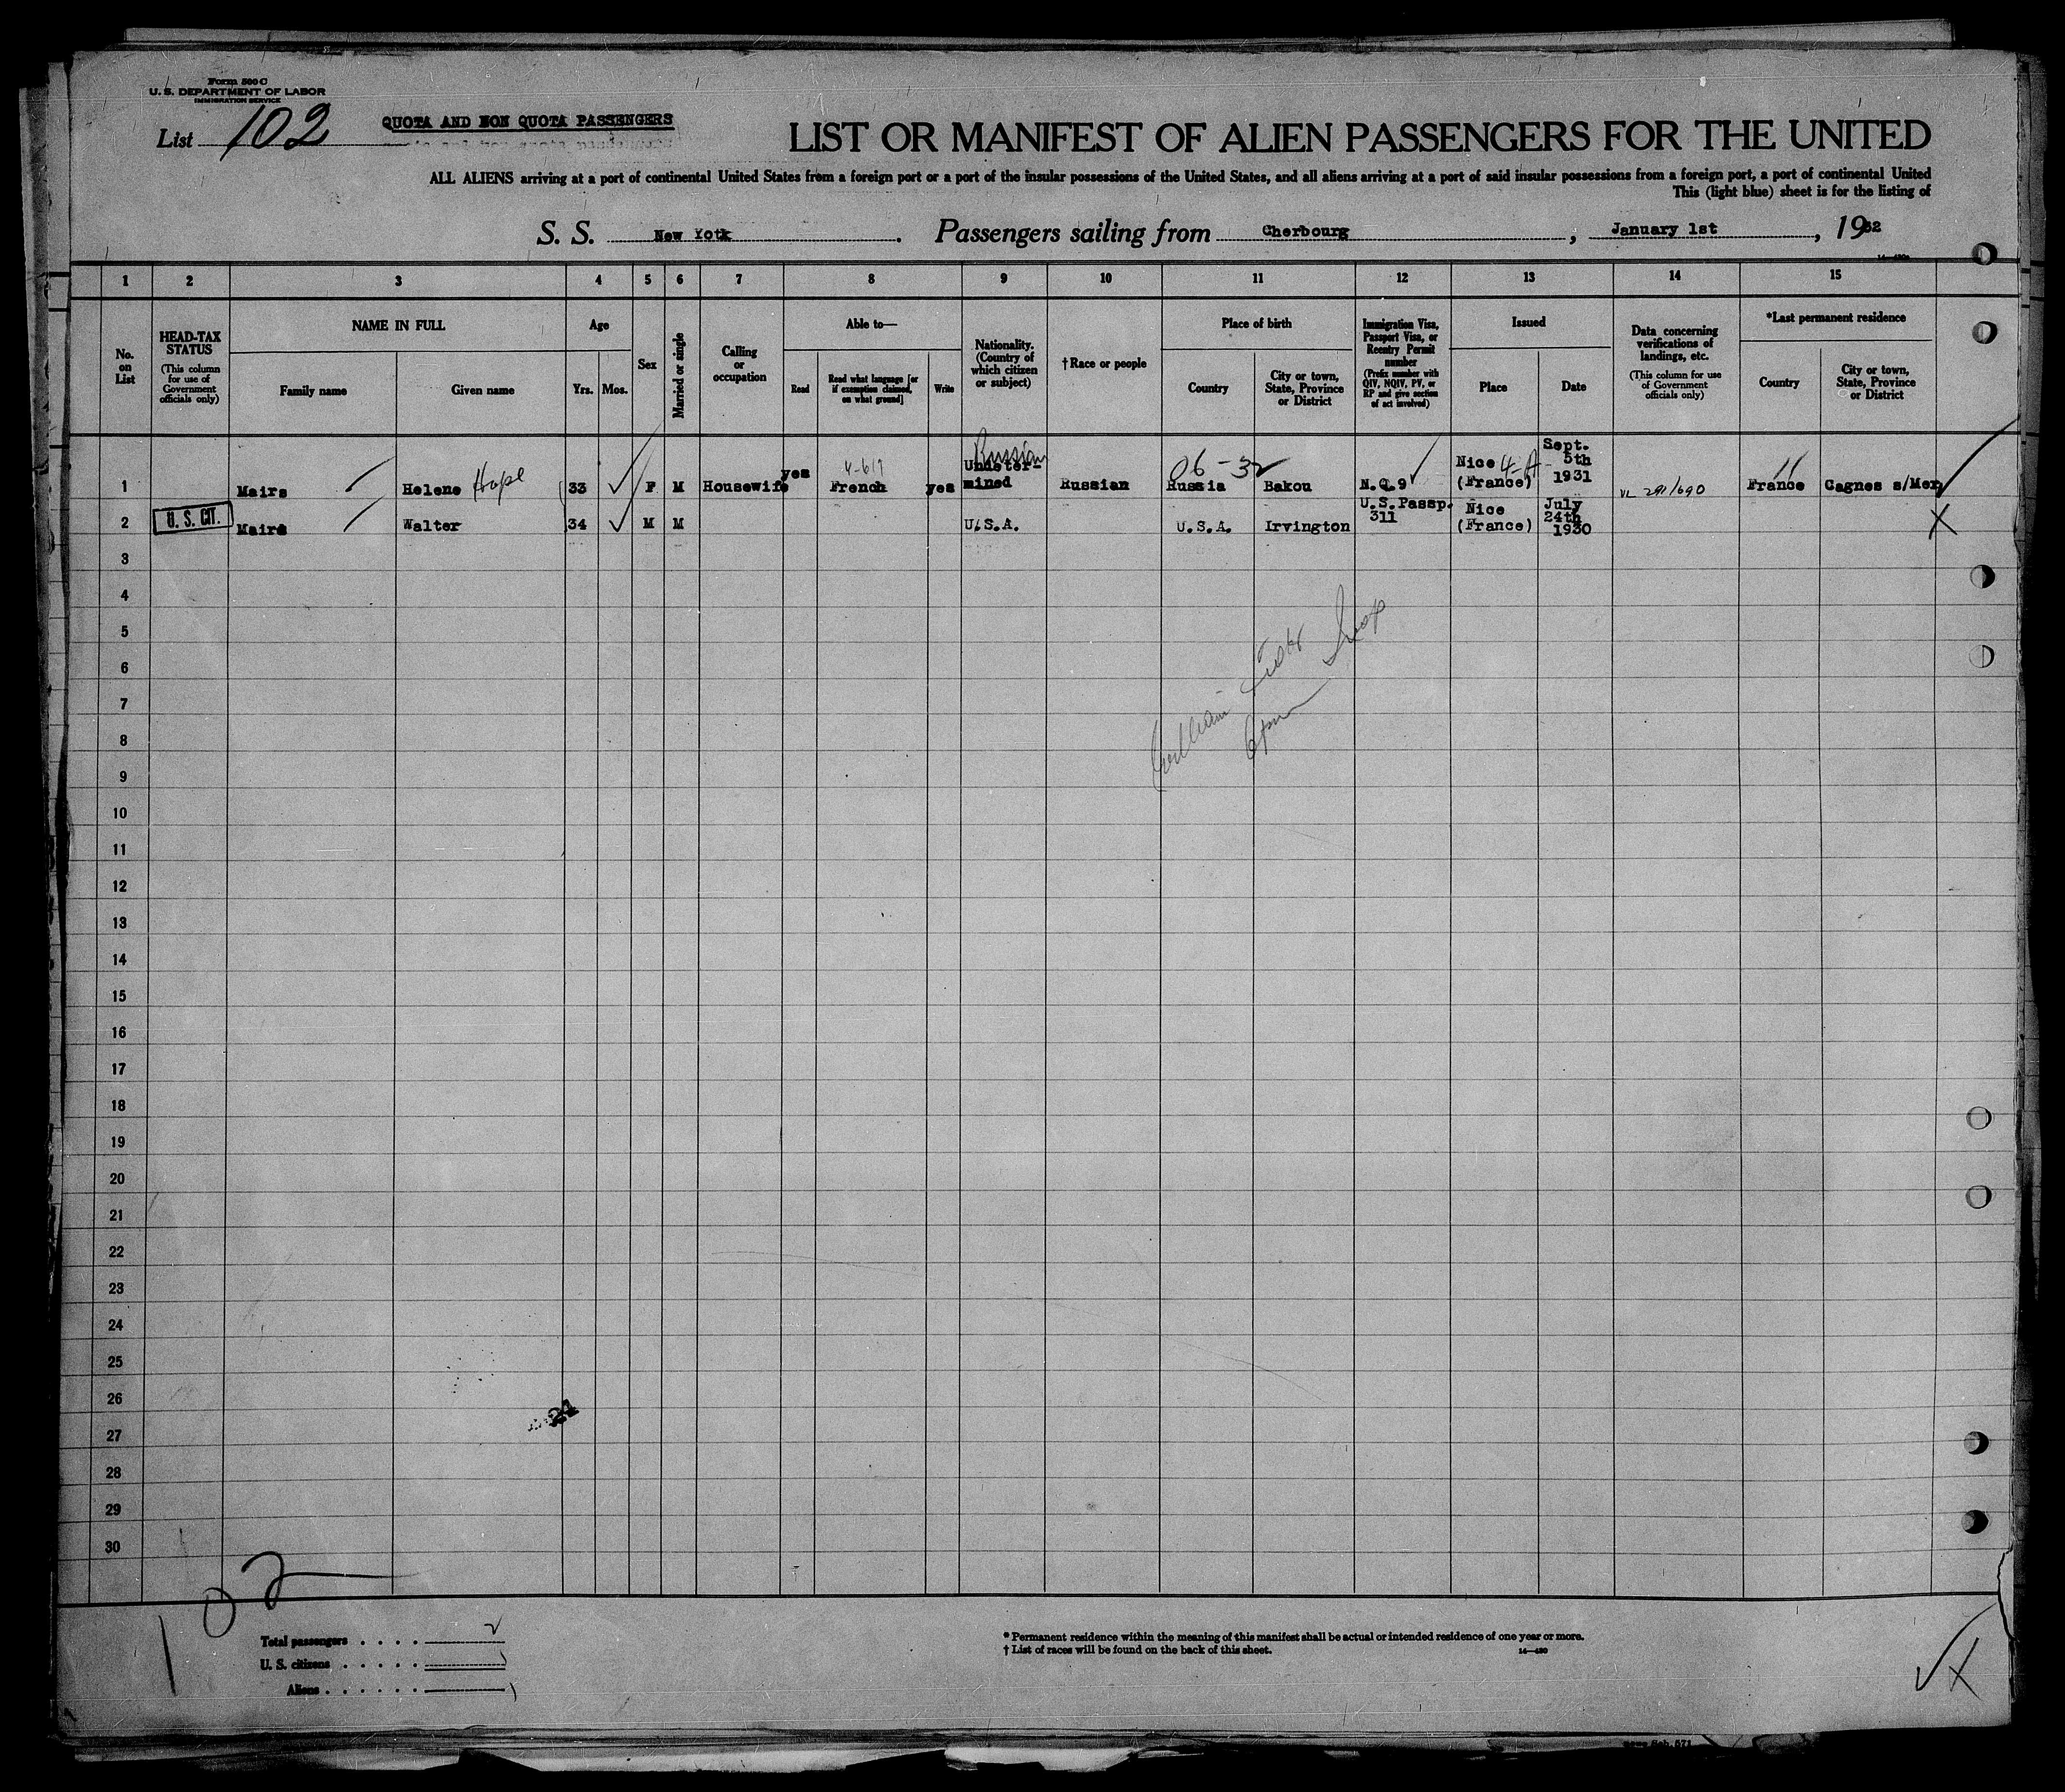 Form 500 C
U. S. DEPARTMENT OF LABOR
IMMIGRATION SERVICE
List 102
QUOTA AND NON QUOTA PASSENGERS
LIST OR MANIFEST OF ALIEN PASSENGERS FOR THE UNITED
ALL ALIENS arriving at a port of continental United States from a foreign port or a port of the insular possessions of the United States, and all aliens arriving at a port of said insular possessions from a foreign port, a port of continental United
This (light blue) sheet is for the listing of
S. S. New York. Passengers sailing from Cherbourg, January 1st, 1932
1 2 3 4 5 6 7 8 9 10 11 12 13 14 15
No. on List
HEAD-TAX STATUS (This column for use of Government officials only)
NAME IN FULL
Family name Given name
Age
Yrs. Mos.
Sex
Married or single
Calling or occupation
Able to—
Read
Read what language [or if exemption claimed, on what ground]
Write
Nationality. (Country of which citizen or subject)
†Race or people
Place of birth
Country
City or town, State, Province or District
Immigration Visa, Passport Visa, or Reentry Permit number (Prefix number with QIV, NQIV, PV, or RP and give section of act involved)
Issued
Place Date
Data concerning verifications of landings, etc. (This column for use of Government officials only)
*Last permanent residence
Country
City or town, State, Province or District
1 Mairs Helene Hope 33 F M Housewife yes French yes Undeter-mined Russian Russian 06-32 Russia Bakou N.Q.9 Nice (France) 4-A Sept. 5th 1931 VL 291/690 France Cagnes s/Mer
2 U. S. CIT. Mairs Walter 34 M M U.S.A. U.S.A. Irvington U.S.Passp. 311 Nice (France) July 24th 1930
3
4
5
6
7
8
9
10
11
12
13
14
15
16
17
18
19
20
21
22
23
24
25
26
27
28
29
30
William
6pm
24
102
Total passengers . . . . 2
U. S. citizens . . . . .
Aliens . . . . . .
* Permanent residence within the meaning of this manifest shall be actual or intended residence of one year or more.
† List of races will be found on the back of this sheet.
14—430